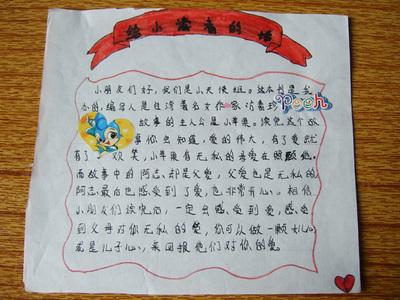 给小读者的话
小朋友们好,我们是小天使组。这本书是我
办的,编写人是台湾著名女作家
Pooh
故事的主人公是小苹果。读完这个故
事你会知道,爱的伟大,有了爱就
有了欢笑,小苹果有无私的母爱在照顾他。
而故事中的阿志,却是父爱,父爱也是无私的
阿志最后也感受到了爱,也非常开心。相信
小朋友们读完后,一定会感受到爱,感受
到父母对你无私的爱,你可以做一颗女儿心
或是儿子心,来回报他们对你的爱。